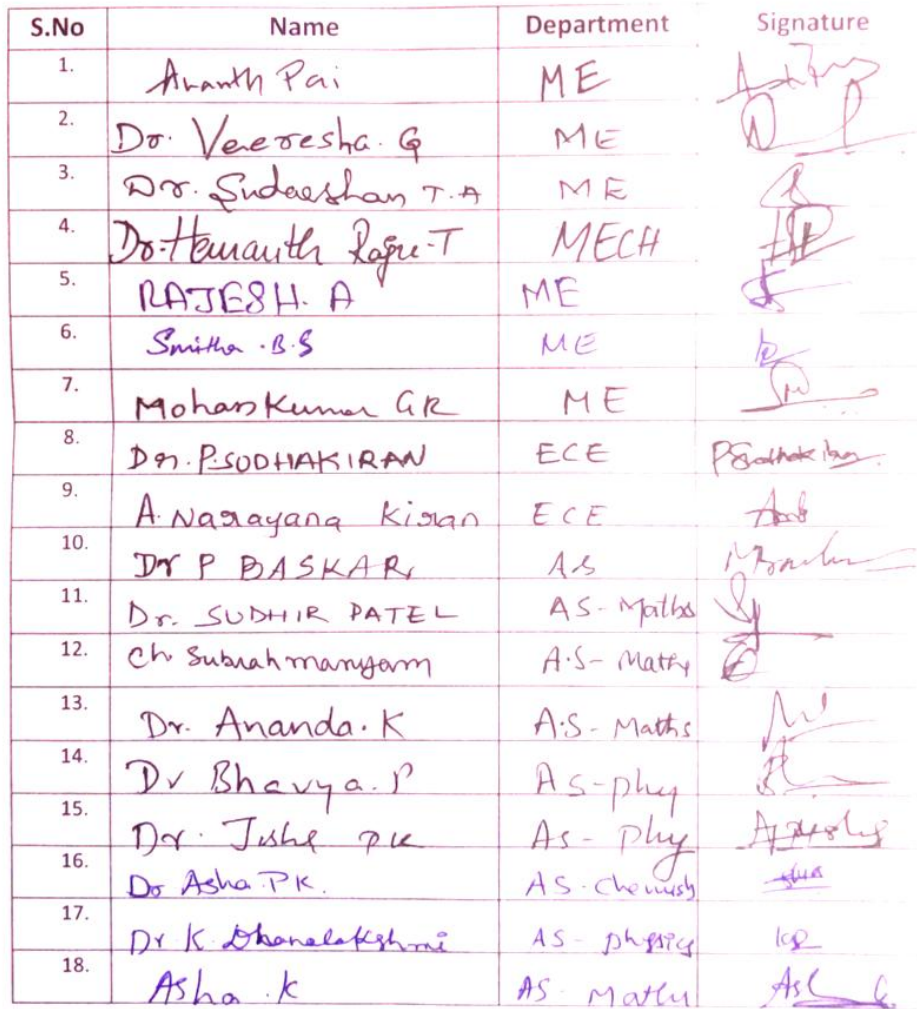 S.No Name Department Signature
1. Ananth Pai ME
2. Dr. Veeresha. G ME
3. Dr. Sudarshan T.A ME
4. Dr. Hemanth Raju-T MECH
5. RAJESH. A ME
6. Smitha .B.S ME
7. Mohan Kumar GR ME
8. Dr. P.SUDHAKIRAN ECE
9. A. Narayana Kiran ECE
10. Dr P BASKAR AS
11. Dr. SUDHIR PATEL AS-Maths
12. Ch Subrahmanyam A.S-Maths
13. Dr. Ananda.K A.S-Maths
14. Dr Bhavya.P AS-phy
15. Dr. PK AS-Phy
16. Dr Asha.PK. AS-Chemistry
17. Dr K Dhanalakshmi AS-physics
18. Asha.K AS-Maths